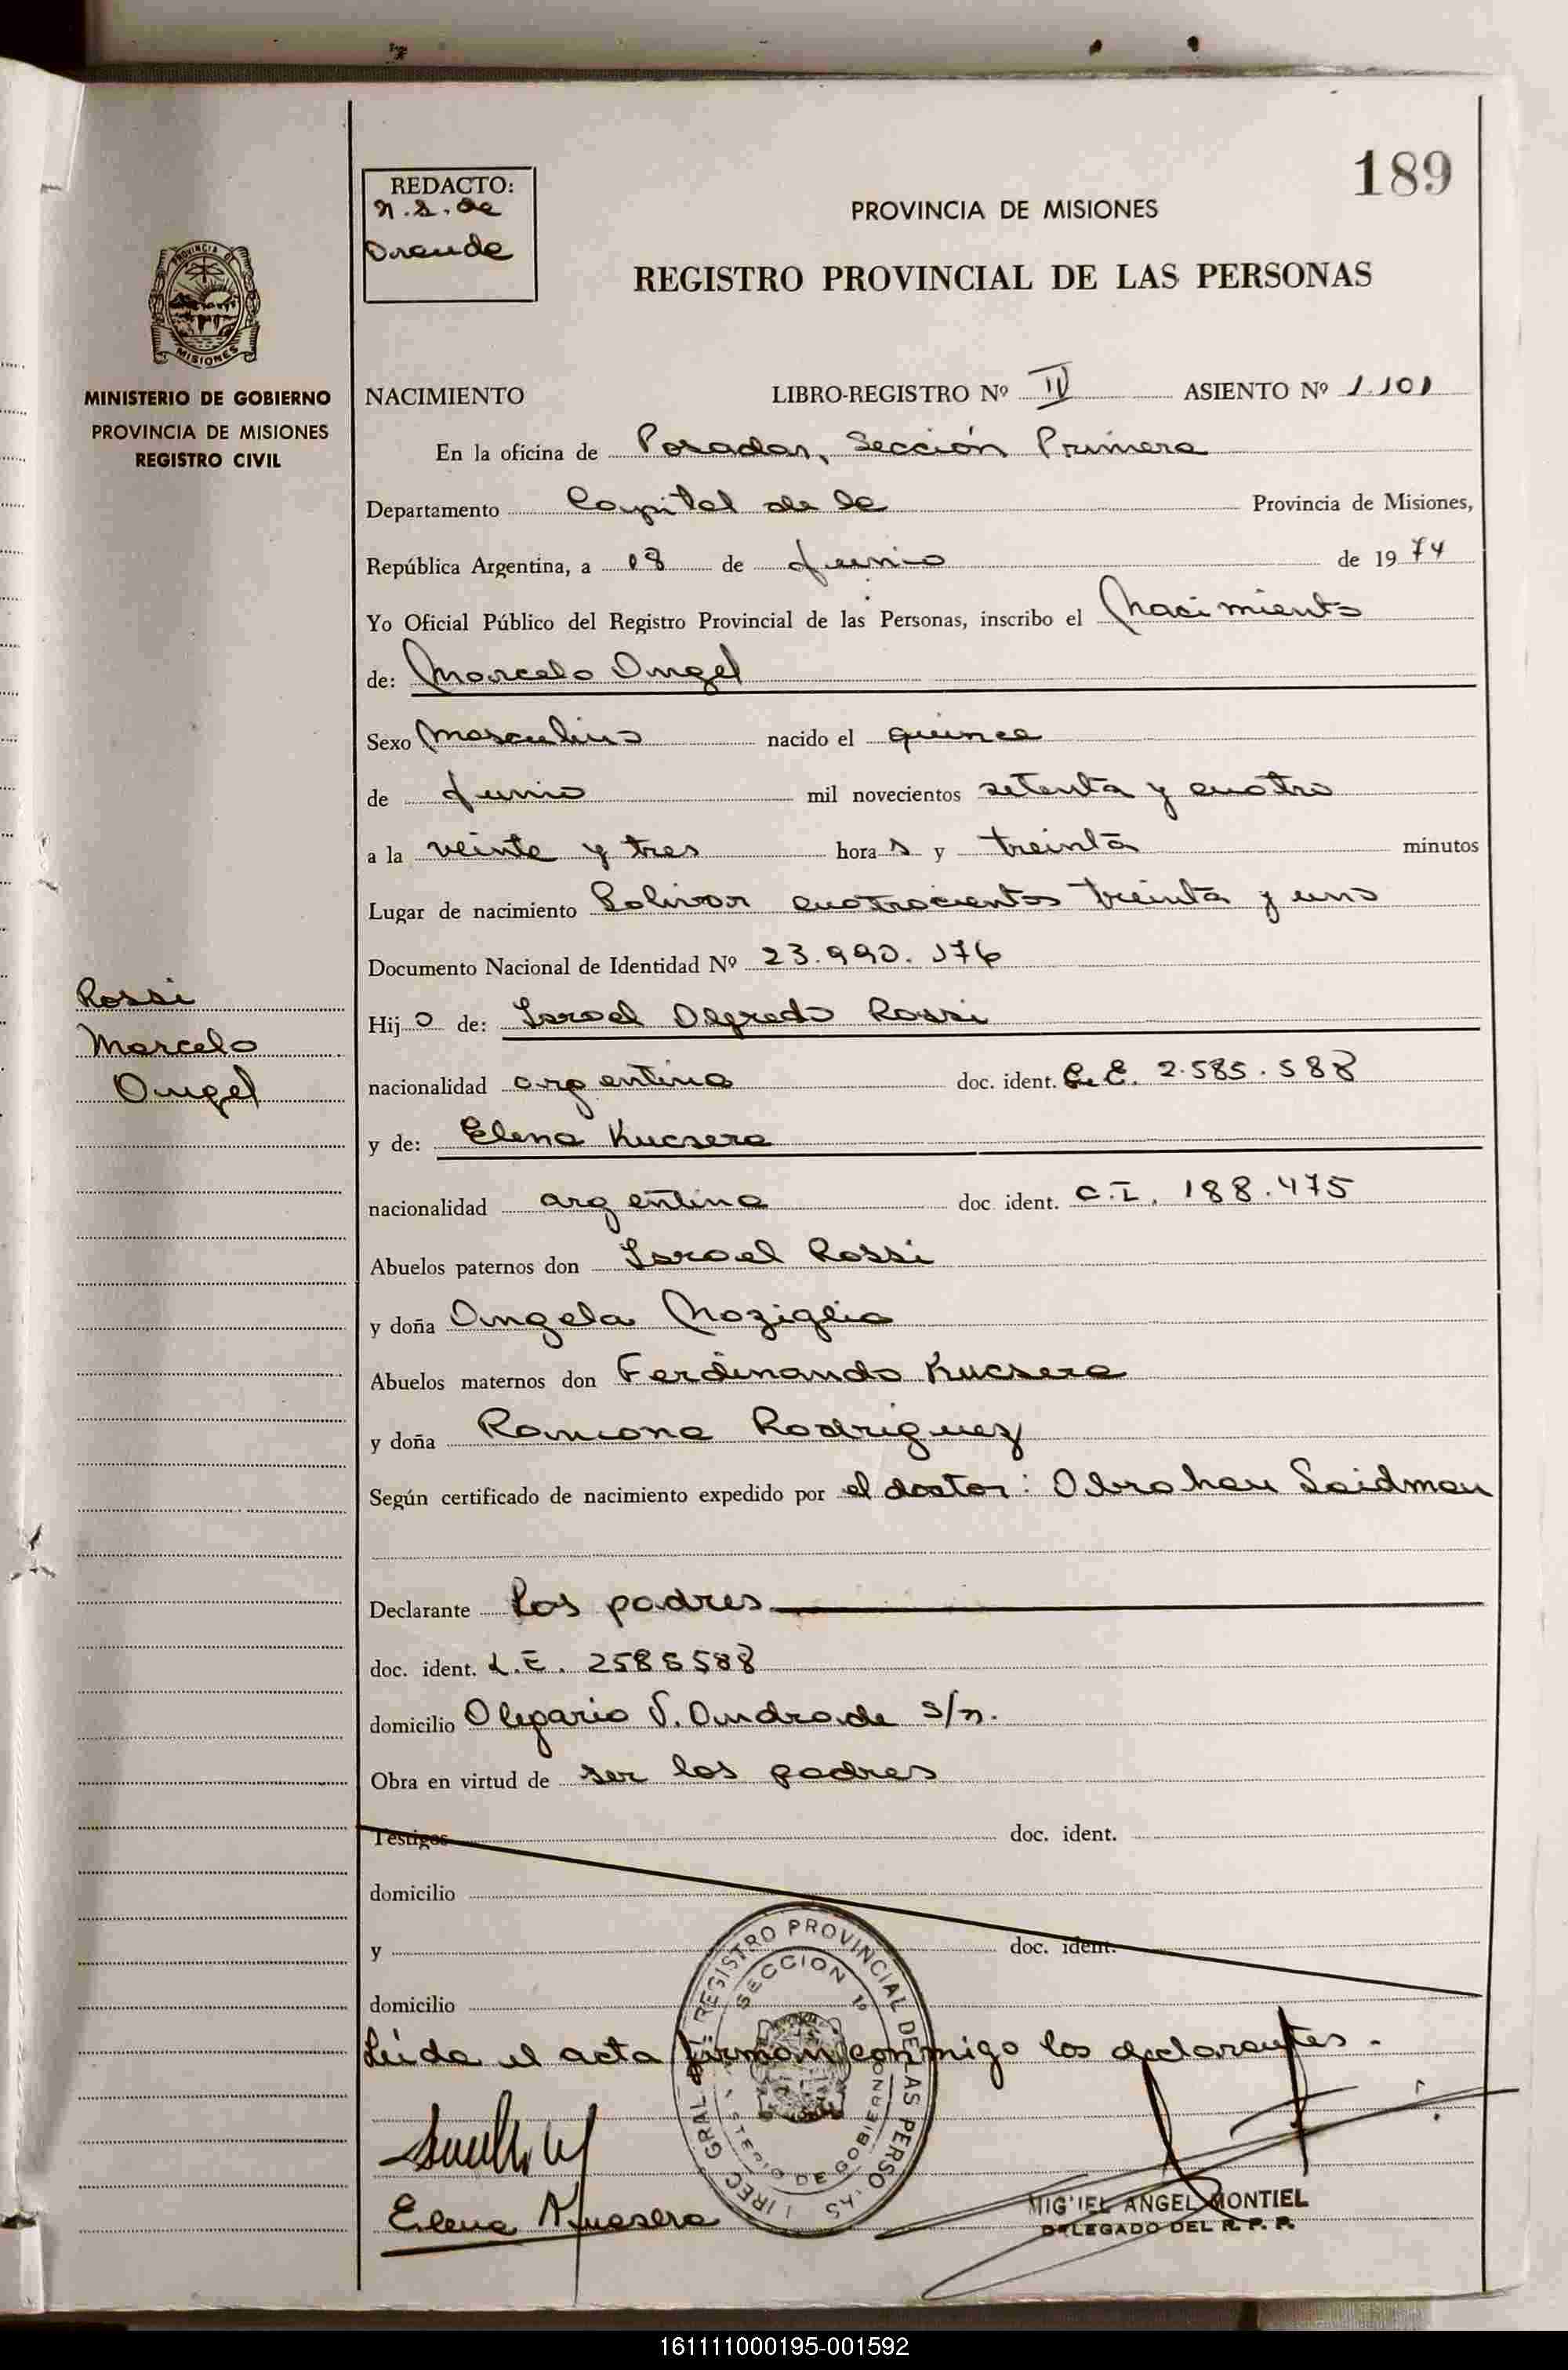 189
REDACTO:
PROVINCIA DE MISIONES
REGISTRO PROVINCIAL DE LAS PERSONAS
PROVINCIA DE
MISIONES
MINISTERIO DE GOBIERNO
PROVINCIA DE MISIONES
REGISTRO CIVIL
NACIMIENTO LIBRO-REGISTRO Nº IV ASIENTO Nº 1.101
En la oficina de Posadas, Sección Primera
Departamento Capital de la Provincia de Misiones,
República Argentina, a 18 de Junio de 1974
Yo Oficial Público del Registro Provincial de las Personas, inscribo el Nacimiento
de: Marcelo Angel
Sexo Masculino nacido el quince
de Junio mil novecientos setenta y cuatro
a la veinte y tres hora s y treinta minutos
Lugar de nacimiento Bolivar cuatrocientos treinta y uno
Documento Nacional de Identidad Nº 23.990.176
Rossi
Marcelo
Angel
Hij o de: Israel Alfredo Rossi
nacionalidad argentina doc. ident. L.E. 2.585.588
y de: Elena Kucsera
nacionalidad argentina doc ident. C.I. 188.475
Abuelos paternos don Israel Rossi
y doña Angela Noziglia
Abuelos maternos don Ferdinando Kucsera
y doña Ramona Rodriguez
Según certificado de nacimiento expedido por el doctor: Abraham Saidman
Declarante Los padres
doc. ident. L.E. 2585588
domicilio Olegario V. Andrade s/n.
Obra en virtud de ser los padres
Testigos doc. ident.
domicilio
y doc. ident.
domicilio
Leída el acta firman conmigo los declarantes.-
REGISTRO PROVINCIAL DE LAS PERSO
SECCION 1º
DE GOBIERNO
Elena Kucsera
MIGUEL ANGEL MONTIEL
DELEGADO DEL R. P. P.
161111000195-001592